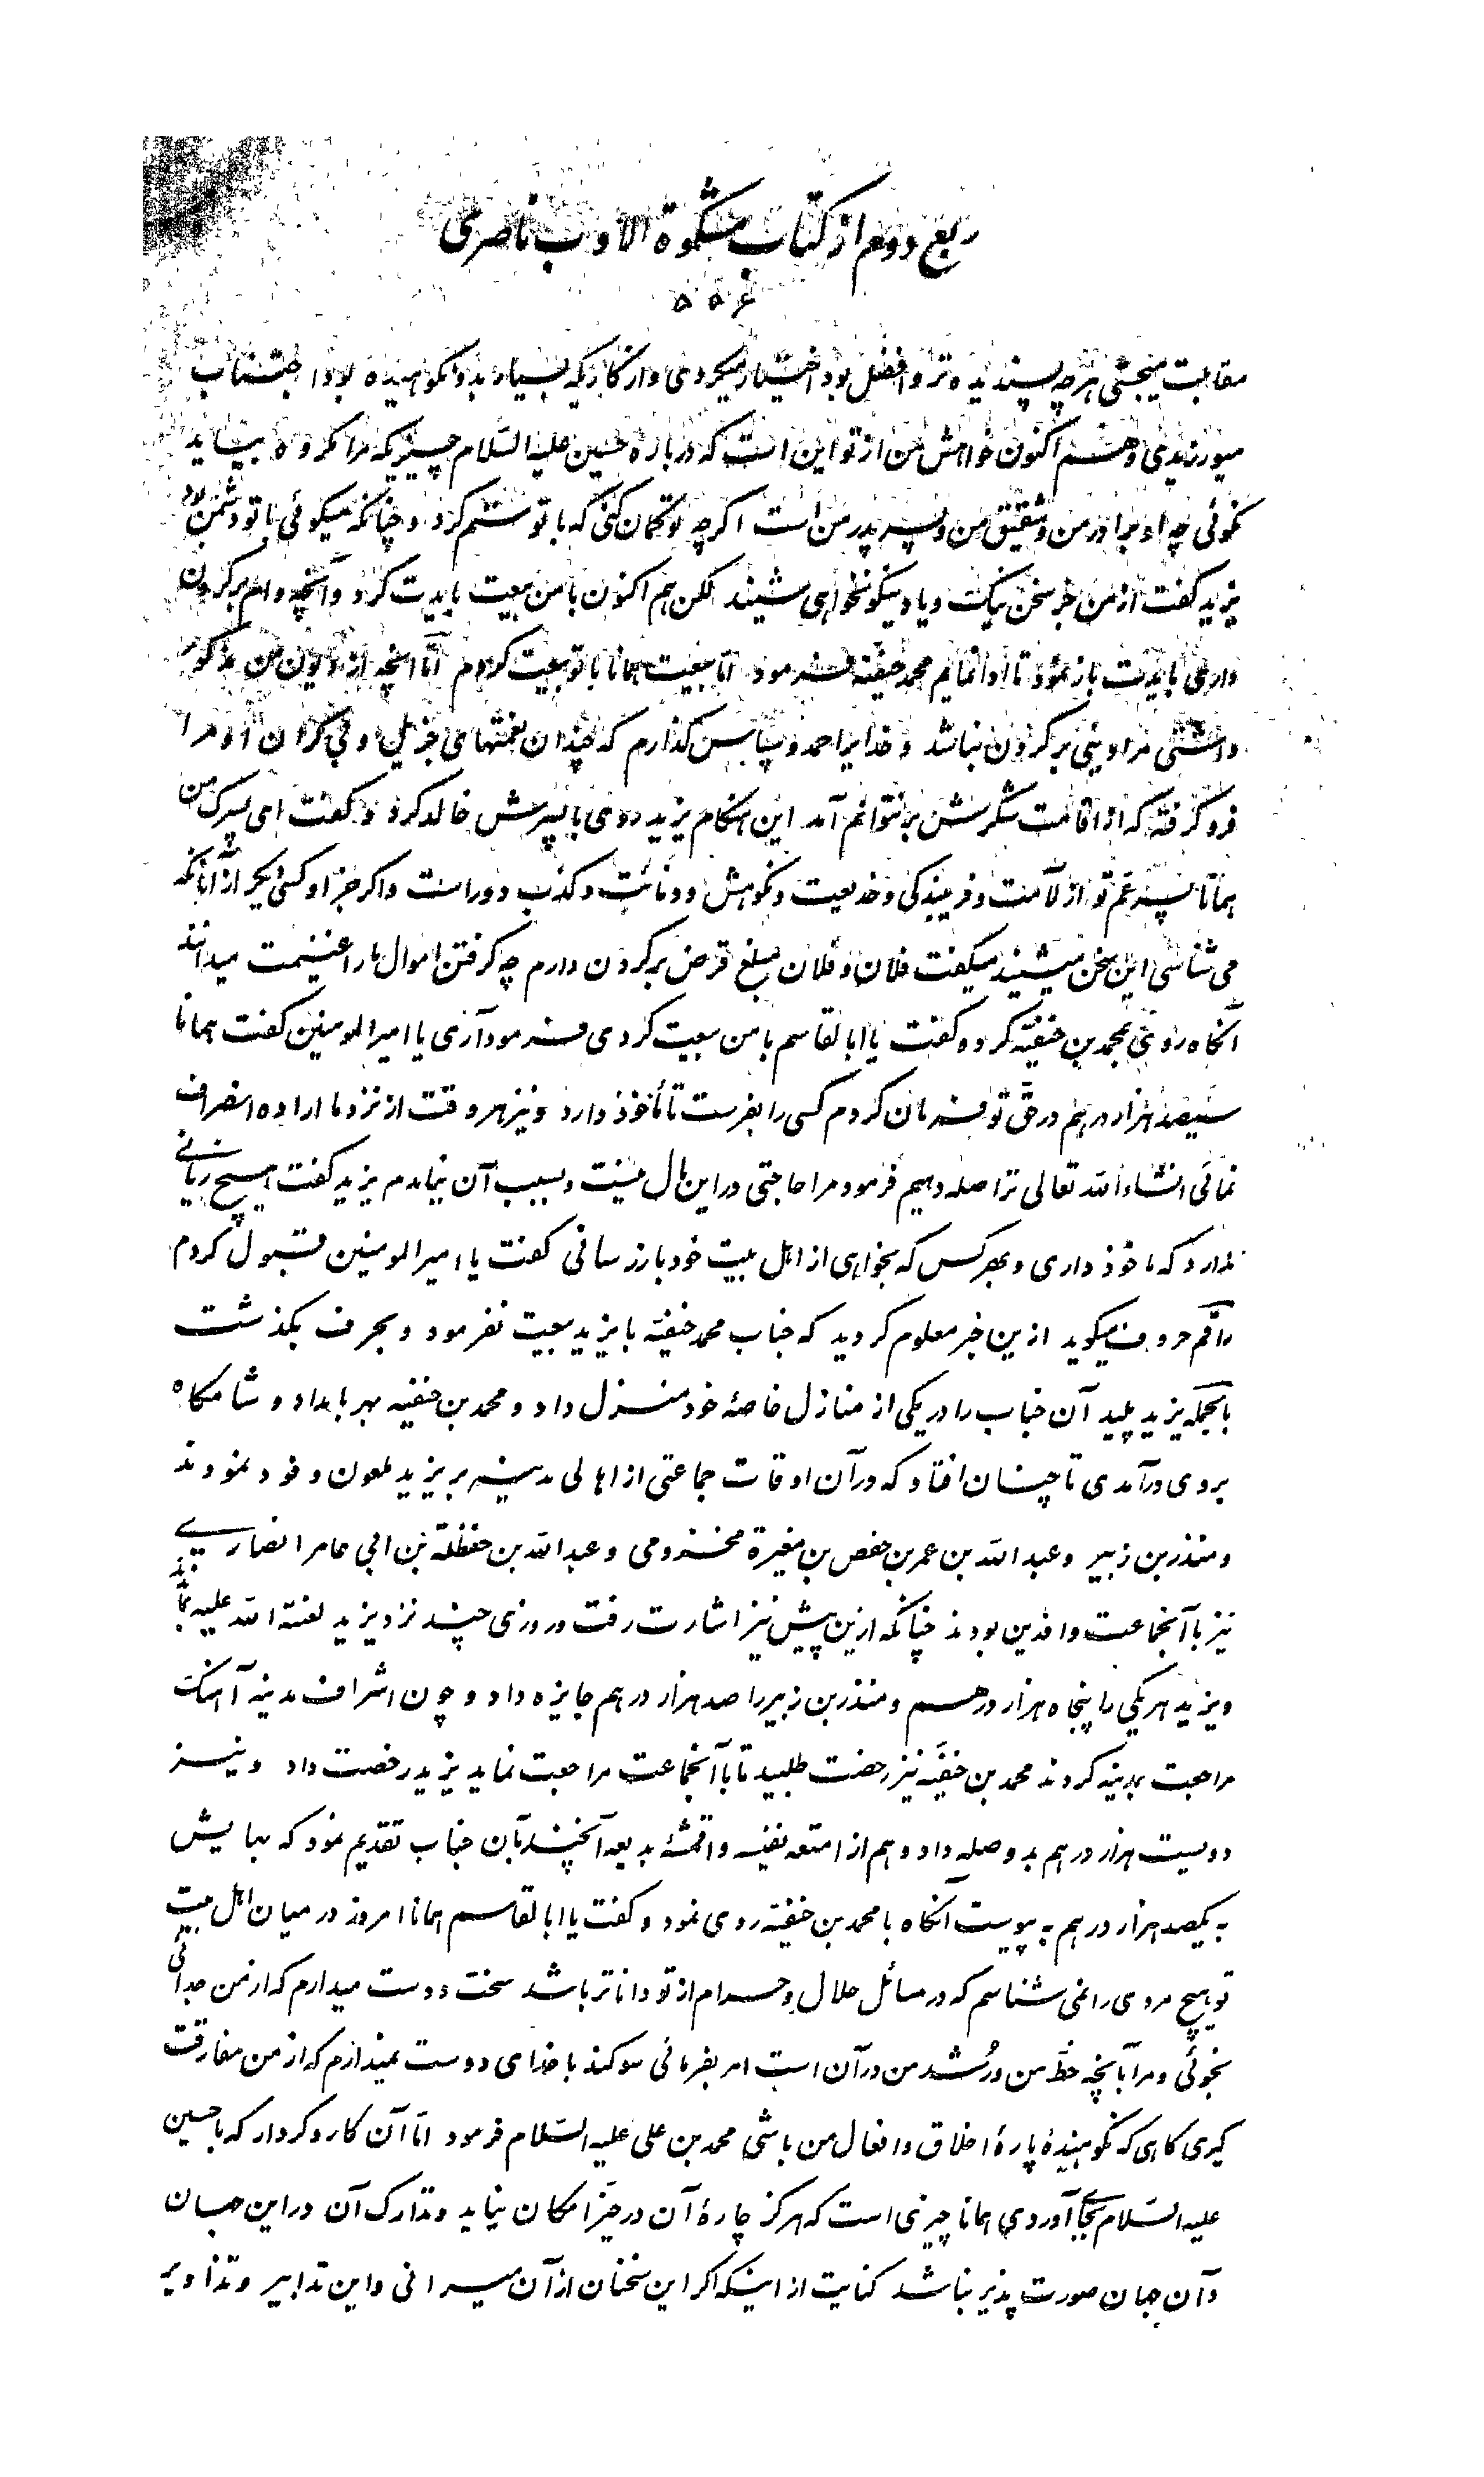 ربع دوم از کتاب مشکوة الادب ناصری
۵۵۶
هرچه پسندیده تر و افضل بود اختیار میکردی و از کاریکه بسیار بد و نکوهیده بود اجتناب
میورزیدی و هم اکنون خواهش من از تو این است که درباره حسین علیه السّلام چیزیکه مرا مکروه بیاید
نگوئی چه او برادر من و شقیق من و پسر پدر من است اگرچه تو گمان کنی که با تو ستم کرد و چنانکه میگوئی با تو دشمن بود
یزید گفت از من جز سخن نیک و یاد نیکو نخواهی شنید لکن هم اکنون با من بیعت بایدت کرد و آنچه وام بر گردن
داری بایدت باز نمود تا ادا نمایم محمد حنفیّه فرمود امّا بیعت همانا با تو بیعت کردم امّا آنچه از دیون من مذکور
داشتی مرا دینی بر گردن نباشد و خدایرا حمد و سپاس گذارم که چندان نعمتهای جزیل او مرا
فرو گرفته که از اقامت شکرش بر نتوانم آمد این هنگام یزید روی با پسرش خالد کرد و گفت ای پسرک من
همانا پسر عمّ تو از لآمت و فریبندگی و خدیعت و نکوهش و دنائت و کذب دور است و اگر جز او کسی دیگر از آنانکه
می شناسی این سخن میشنید میگفت فلان و فلان مبلغ قرض بر گردن دارم چه گرفتن اموال ما را غنیمت میدانند
آنگاه روی بمحمد بن حنفیّه کرده گفت یا ابا لقاسم با من بیعت کردی فرمود آری یا امیرالمومنین گفت همانا
سیصد هزار درهم در حقّ تو فرمان کردم کسی را بفرست تا مأخوذ دارد و نیز هر وقت از نزد ما اراده انصراف
نمائی انشاءالله تعالی ترا صله دهیم فرمود مرا حاجتی در این مال نیست و بسبب آن نیامدم یزید گفت هیچ زیانی
ندارد که ماخوذ داری و بهر کس که بخواهی از اهل بیت خود باز رسانی گفت یا امیرالمومنین قبول کردم
راقم حروف میگوید ازین خبر معلوم گردید که جناب محمد حنفیّه با یزید بیعت نفرمود و بحرف بگذشت
بالجمله یزید پلید آن جناب را در یکی از منازل خاصهٔ خود منزل داد و محمد بن حنفیه بهر بامداد و شامگاه
بروی درآمدی تا چنان افتاد که در آن اوقات جماعتی از اهالی مدینه بر یزید ملعون وفود نمودند
و منذر بن زبیر و عبدالله بن عمر بن حفص بن مغیرة مخزومی و عبدالله بن حنظلة بن ابی عامر انصاری
نیز با آنجماعت وافدین بودند چنانکه ازین پیش نیز اشارت رفت و روزی چند نزد یزید لعنة الله علیه بماندند
و یزید هر یکی را پنجاه هزار درهم و منذر بن زبیر را صد هزار درهم جایزه داد و چون اشراف مدینه آهنگ
مراجعت بمدینه کردند محمد بن حنفیّه نیز رخصت طلبید تا با آنجماعت مراجعت نماید یزید رخصت داد و نیز
دویست هزار درهم بدو صله داد و هم از امتعه نفیسه و اقمشهٔ بدیعه آنچند بآن جناب تقدیم نمود که بهایش
به یکصد هزار درهم به پیوست آنگاه با محمد بن حنفیّه روی نمود و گفت یا ابا لقاسم همانا امروز در میان اهل بیت
تو هیچ مردی را نمی شناسم که در مسائل حلال و حرام از تو داناتر باشد سخت دوست میدارم که از من جدائی
نجوئی و مرا بآنچه حظّ من و رُشد من در آن است امر بفرمائی سوگند با خدای دوست نمیدارم که از من مفارقت
گیری گاهی که نکوهیندهٔ پارهٔ اخلاق و افعال من باشی محمد بن علی علیه السّلام فرمود امّا آن کار و کردار که با حسین
علیه السّلام بجای آوردی همانا چیزی است که هرگز چارهٔ آن در حیّز امکان نیاید و تدارک آن در این جهان
و آن جهان صورت پذیر نباشد کنایت از اینکه اگر این سخنان از آن میرانی و این تدابیر و تزاویر